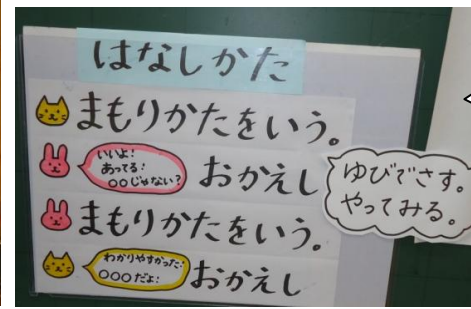 はなしかた
まもりかたをいう。
いいよ!
あってる!
○○じゃない?
おかえし
ゆびでさす。
やってみる。
まもりかたをいう。
わかりやすかった!
○○○だよ!
おかえし